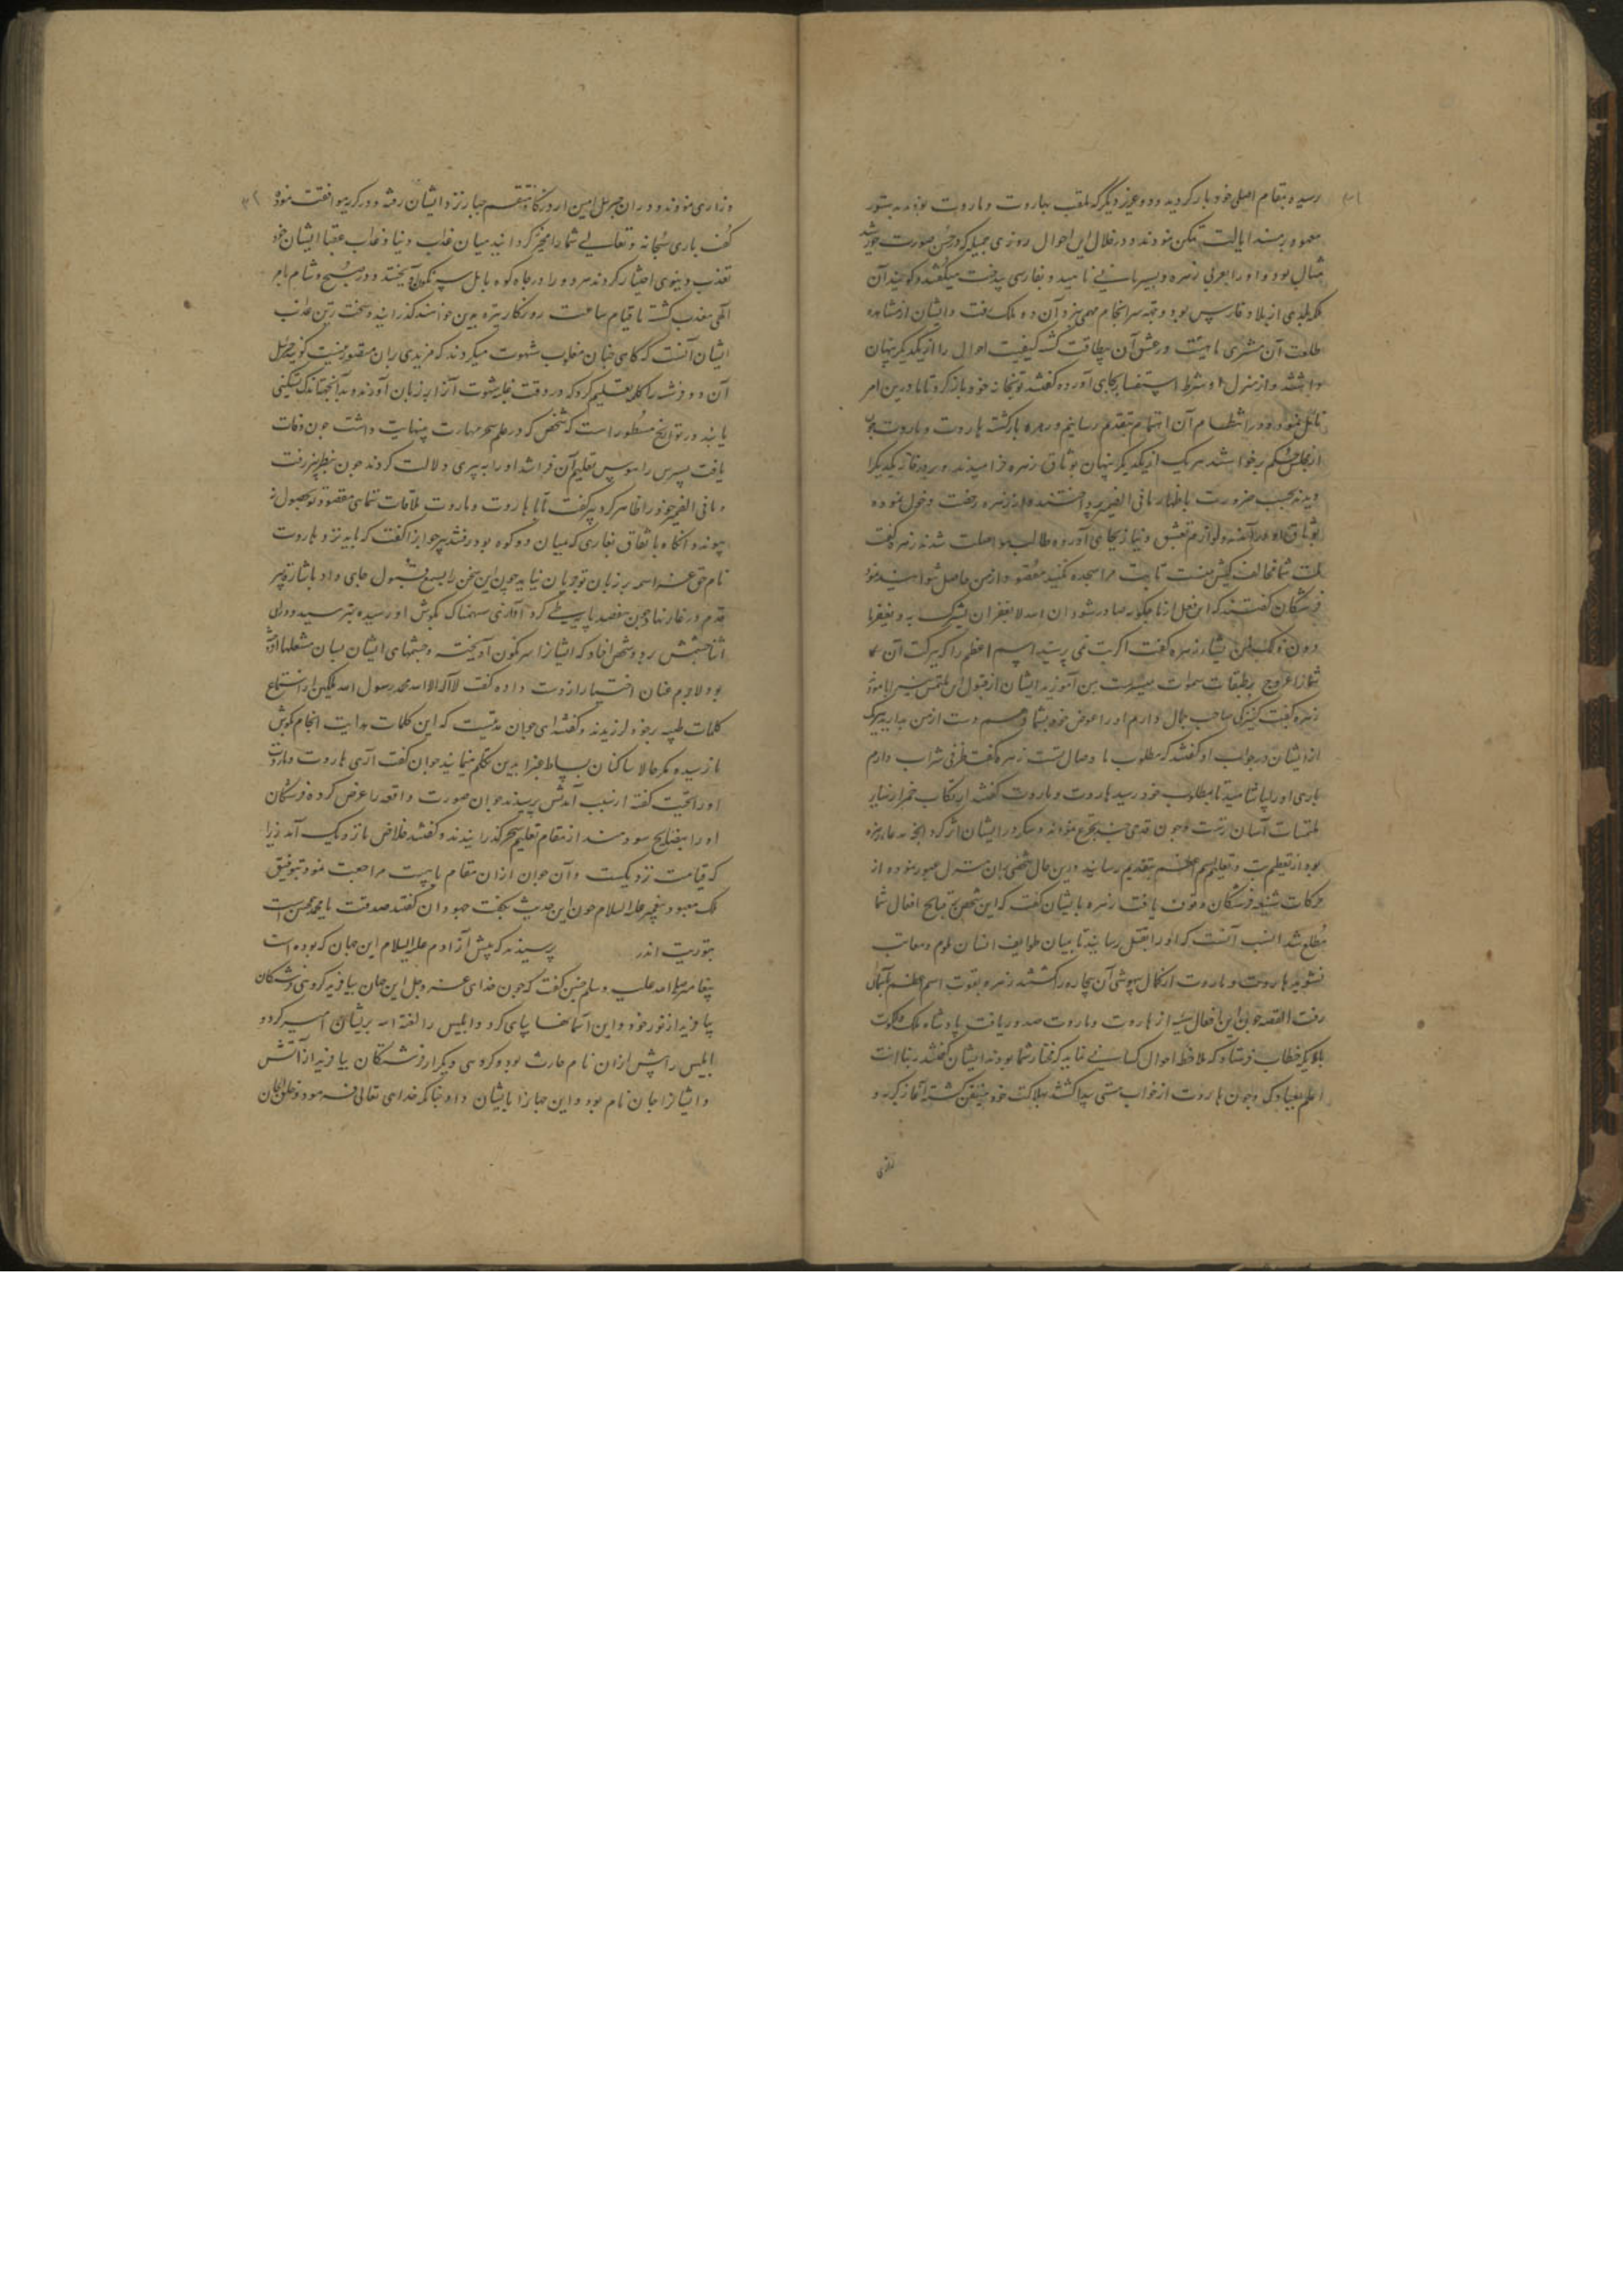 رسید و بمقام اصلی خود باز کردید و دو عزیز دیگر که ملقب بهاروت و ماروت بودند بدستور
معهود بر مسند ایالت تمکن نمودند و در خلال این احوال روزی جمیله که در حسن صورت خورشید
مثال بود و او را بعربی زهره و بسریانی ناهید و بفارسی بیدخت میکفتند و کویند آن
ملکه بلدی از بلاد فارس بود و جهه سرانجام مهمی نزد آن دو ملک رفت و ایشان از مشاهده
طلعت آن مشتری ماهیت در عشق آن بیطاقت کشته کیفیت احوال را از یکدیکر پنهان
داشتند و از منزل او شرط استفسار بجای آورده کفتند توبخانه خود باز کرد تا ما درین امر
تامل نموده در انتظام آن اهتمام بتقدیم رسانیم و زهره بازکشته هاروت و ماروت چون
از مجلس حکم برخواستند هر یک از یکدیکر پنهان بوثاق زهره خرامیدند و بر در خانه یکدیکر را
دیدند بحسب ضرورت باظهار ما فی الضمیر پرداختند و از زهره رخصت دخول نموده
بوثاق او درآمدند و لوازم تعشق و نیاز بجای آورده طالب مواصلت شدند زهره کفت
ملت شما مخالف کیش منست تا بت مرا سجده نکنید مقصود از من حاصل نشود
فرشتکان کفتند که این فعل از ما چکونه صادر شود ان الله لا یغفر ان یشرک به و یغفر ما
دون ذلک لمن یشاء زهره کفت اکر بت نمی پرستید اسم اعظم را که ببرکت آن
شما را عروج بر طبقات سموات میسرست بمن آموزید ایشان از قبول این ملتمس نیز ابا نمودند
زهره کفت کنیزکی صاحب جمال دارم او را عوض خود بشما دهم دست از من بدارید هر یک
از ایشان در جواب او کفتند که مطلوب ما وصال تست زهره کفت ظرفی شراب دارم
باری او را بیاشامید تا بمطلوب خود رسید هاروت و ماروت کفتند ارتکاب خمر از سایر
ملتمسات آسان ترست و چون قدحی چند تجرع نمودند و سکر در ایشان اثر کرد آنچه مدعای زهره
بود از تعظیم بت و تعلیم اسم اعظم بتقدیم رسانیدند درین حال شخصی بران منزل عبور نموده از
حرکات شنیعه فرشتکان وقوف یافت زهره بایشان کفت که این شخص بر قبایح افعال شما
مطلع شد انسب آنست که او را بقتل رسانید تا بمیان طوایف انسان ملوم و معاتب
نشوید هاروت و ماروت از کمال بیهوشی آن بیچاره را کشتند زهره بقوت اسم اعظم بآسمان
رفت القصه چون این افعال سیئه از هاروت و ماروت صدور یافت پادشاه ملک و ملکوت
بملایکه خطاب فرستاد که ملاحظه احوال کسانی نمایید که مختار شما بودند ایشان کفتند ربنا انت
اعلم بعبادک و چون هاروت از خواب مستی بیدار کشتند بهلاکت خود متیقن کشته آغاز کریه و
زاری
وزاری نمودند و در آن جبریل امین از درکاه منتقم جبار نزد ایشان رفته و در کریه موافقت نموده
کفت باری سبحانه و تعالی شما را مخیر کردانید میان عذاب دنیا و عذاب عقبا ایشان خود
تعذب دنیوی اختیار کردند هر دو را در چاه کوه بابل سرنکون آویختند و در صبح و شام بامر
الهی معذب کشته تا قیام ساعت روزکار تیره بدین خوانند کذرانید و سخت ترین عذاب
ایشان آنست که کاهی چنان مغلوب شهوت میکردند که مزیدی بران متصور نیست کویند جبریل
آن دو فرشته را کلمه تعلیم کرد که در وقت غلبه شهوت آنرا بر زبان آورند و بدانجهت اندک تسکینی
یابند و در تواریخ مسطور است که شخصی که در علم سحر مهارت بینهایت داشت چون وفات
یافت پسرش را هوس تعلیم آن فراشد او را به پیری دلالت کردند چون بنظر پیر رفت
و ما فی الضمیر خود را ظاهر کرد پیر کفت تا با هاروت و ماروت ملاقات ننمای مقصود تو بحصول نه
پیوندد آنکاه باتفاق بغاری که میان دو کوه بود رفتند پیر جوانرا کفت که باید نزد هاروت
نام حق عز اسمه بر زبان تو جریان نیابد چون این سخن را بسمع قبول جای داد باشارت پیر
قدم در غار نهاد چون مقصد پاره طی کرد آوازی سهمناک بکوش او رسیده بترسید و در آن
اثنا چشمش بر دو شخص افتاد که ایشانرا سرنکون آویخته و چشمهای ایشان بسان مشعلها افروخته
بود لاجرم عنان اختیار از دست داده کفت لا اله الا الله محمد رسول الله ملکین از استماع
کلمات طیبه بر خود لرزیدند و کفتند ای جوان مدتیست که این کلمات هدایت انجام بکوش
ما نرسیده مکر حالا ساکنان بساط غبرا بدین تکلم مینمایند جوان کفت آری هاروت و ماروت
او را تحیت کفته از سبب آمدنش پرسیدند جوان صورت واقعه را عرض کرده فرشتکان
او را بنصایح سودمند از مقام تعلیم سحر کذرانیدند و کفتند خلاص ما نزدیک آمد زیرا
که قیامت نزدیکست و آن جوان ازان مقام بایست مراجعت نمود بتوفیق
ملک معبود پیغمبر علیه السلام چون این حدیث بکفت جهودان کفتند صدقت یا محمد همچنین است
بتوریت اندر پرسیدند که پیش از آدم علیه السلام این جهان که بوده است
پیغامبر صلی الله علیه وسلم چنین کفت که چون خدای عز وجل این جهان بیافرید کروهی فرشتکان
بیافرید از نور خود و این آسمانها بپای کرد و ابلیس را لعنه الله بریشان امیر کرد و
ابلیس را پیش ازان نام حارث بود و کروهی دیکر از فرشتکان بیافرید از آتش
و ایشانرا جان نام بود و این جهانرا بایشان داد چنانکه خدای تعالی فرمود و خلق الجان